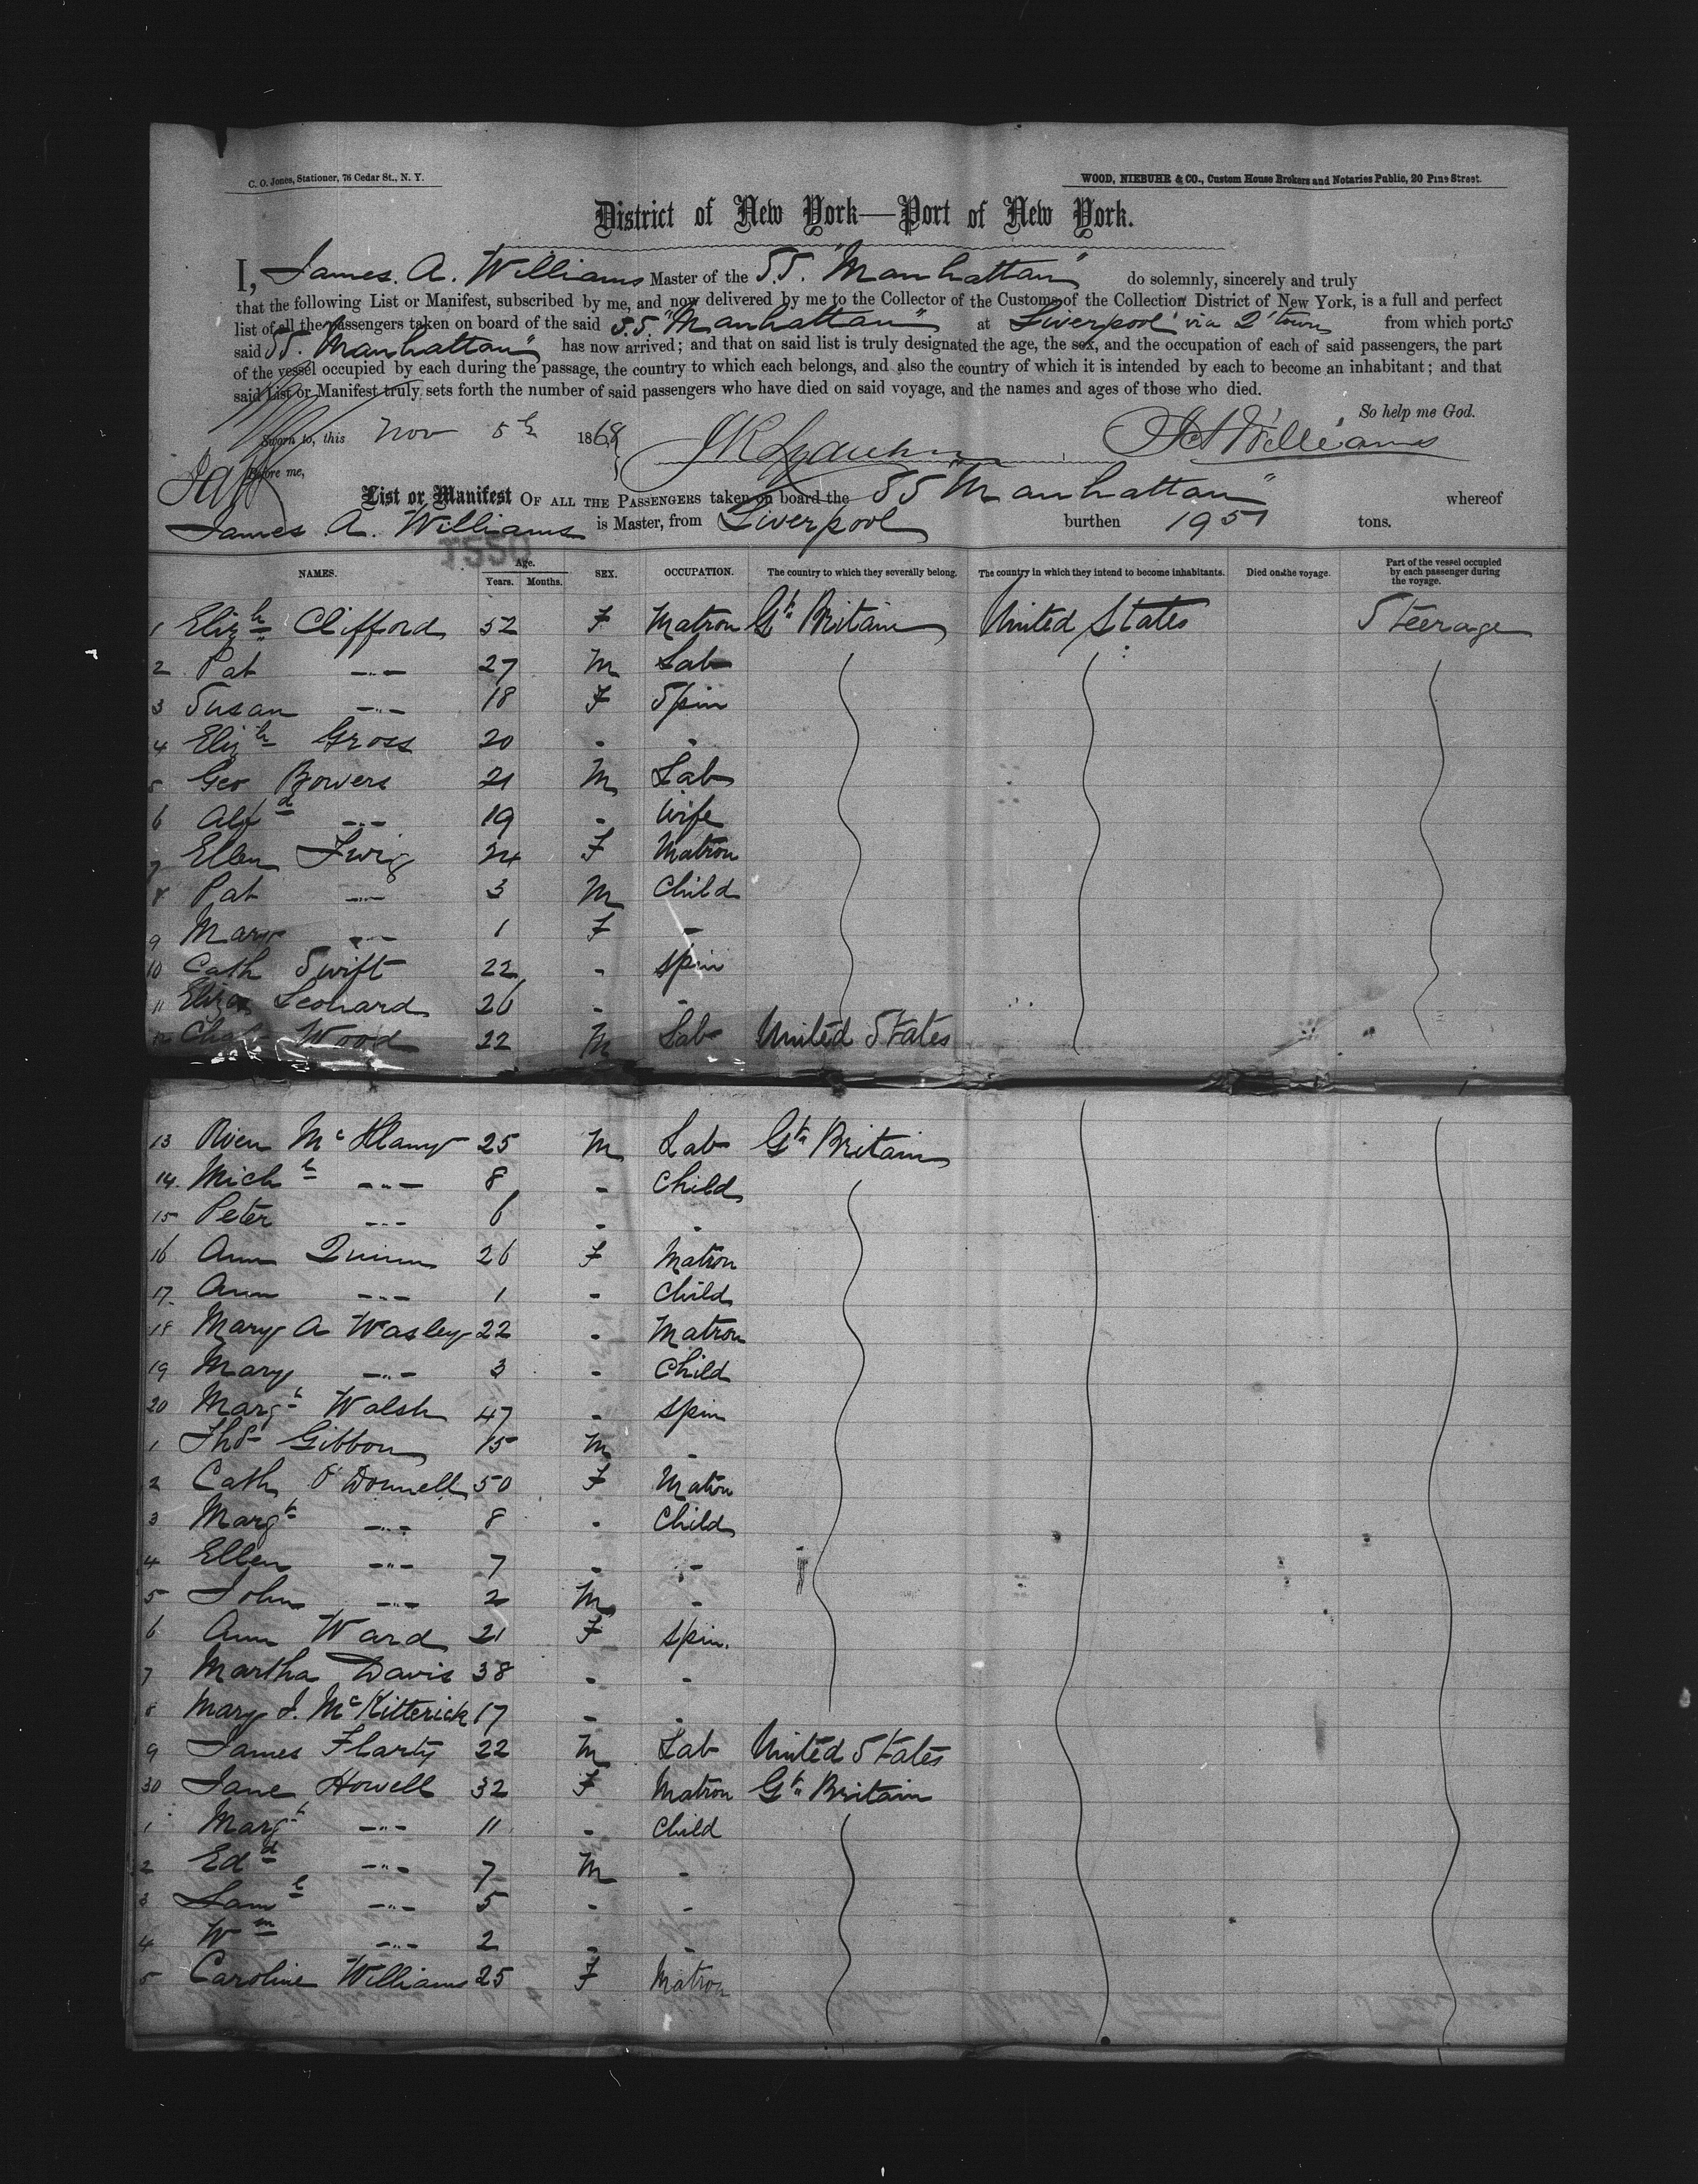 C. O. Jones, Stationer, 76 Cedar St., N. Y.
WOOD, NIEBUHR & CO., Custom House Brokers and Notaries Public, 20 Pine Street.
District of New York—Port of New York.
I, James. A. Williams Master of the S.S. "Manhattan" do solemnly, sincerely and truly
that the following List or Manifest, subscribed by me, and now delivered by me to the Collector of the Customs of the Collection District of New York, is a full and perfect
list of all the passengers taken on board of the said S.S. "Manhattan" at Liverpool via Q'town from which ports
said SS. Manhattan" has now arrived; and that on said list is truly designated the age, the sex, and the occupation of each of said passengers, the part
of the vessel occupied by each during the passage, the country to which each belongs, and also the country of which it is intended by each to become an inhabitant; and that
said List or Manifest truly sets forth the number of said passengers who have died on said voyage, and the names and ages of those who died.
So help me God.
Sworn to, this Nov 5th 1868
JAWilliams
Before me,
List or Manifest OF ALL THE PASSENGERS taken on board the SS "Manhattan" whereof
James A. Williams is Master, from Liverpool burthen 1951 tons.
NAMES. Age. Years. Months. SEX. OCCUPATION. The country to which they severally belong. The country in which they intend to become inhabitants. Died on the voyage. Part of the vessel occupied by each passenger during the voyage.
1 Elizh Clifford 52 F Matron Gt Britain United States Steerage
2 Pat -"- 27 M Lab
3 Susan -"- 18 F Spin
4 Elizh Gross 20 - -
5 Geo Bowers 21 M Lab
6 Alfd -"- 19 - Wife
7 Ellen Twig 24 F Matron
8 Pat -"- 3 M Child
9 Mary -"- 1 F -
10 Cath Swift 22 - Spin
11 Eliza Leonard 26 - -
12 Chas Wood 22 M Lab United States
13 Owen Mc 25 M Lab Gt Britain
14. Michl -"- 8 - Child
15 Peter -"- 6 - -
16 Ann Quinn 26 F Matron
17. Ann -"- 1 - Child
18 Mary A Wasley 22 - Matron
19 Mary -"- 3 - Child
20 Margt Walsh 47 - Spin
1 Thos Gibbon 15 M -
2 Cath O'Donnell 50 F Matron
3 Margt -"- 8 - Child
4 Ellen -"- 7 - -
5 John -"- 2 M -
6 Ann Ward 21 F Spin.
7 Martha Davis 38 - -
8 Mary J. McKitterick 17 - -
9 James Flarty 22 M Lab United States
30 Jane Howell 32 F Matron Gt Britain
1 Margt -"- 11 - Child
2 Edd -"- 7 M -
3 Saml -"- 5 - -
4 Wm -"- 2 - -
5 Caroline Williams 25 F Matron